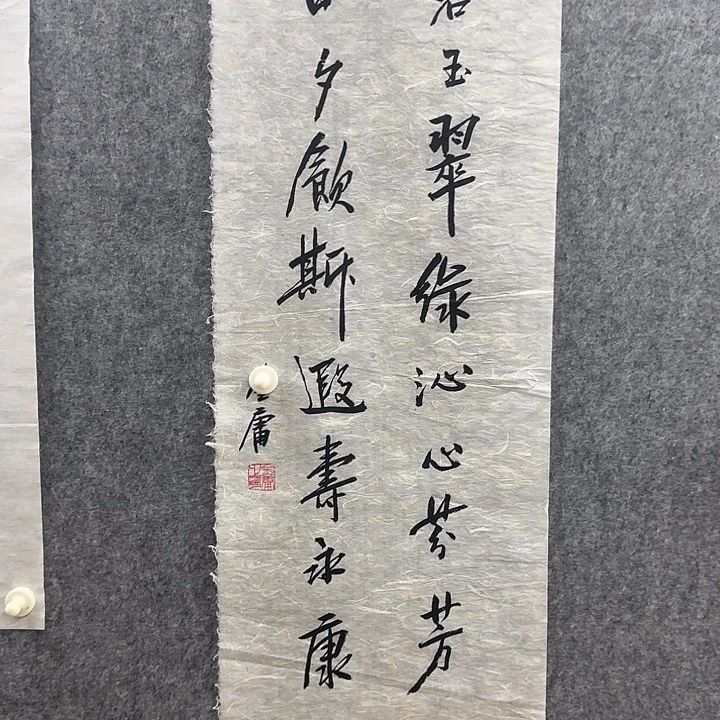 玉翠绿沁心芬芳
夕飲斯遐壽永康
庸